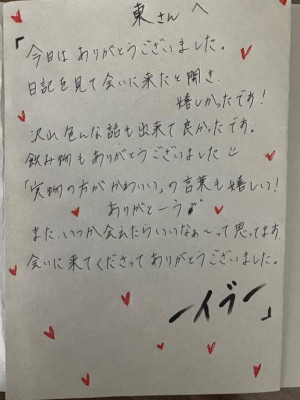 東さんへ
「今日はありがとうございました。
日記を見て会いに来たと聞き、
嬉しかったです！
沢山色んな話も出来て良かったです。
飲み物もありがとうございました
「実物の方がかわいい」の言葉も嬉しい！
ありがとーう♪
また、いつか会えたらいいなぁ〜って思ってます
会いに来てくださってありがとうございました。
ーイブー」